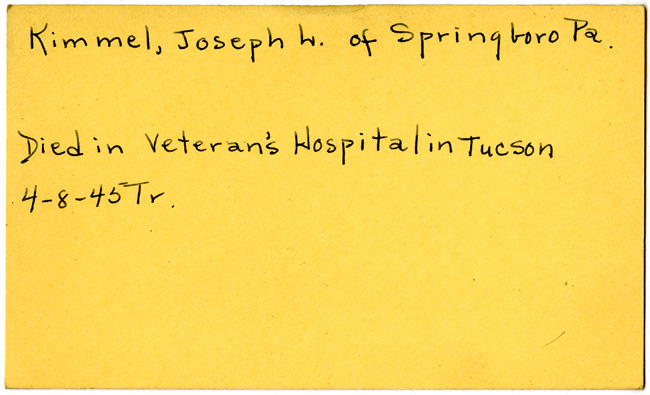 Kimmel, Joseph L. of Springboro Pa.
Died in Veteran's Hospital in Tucson
4-8-45 Tr.